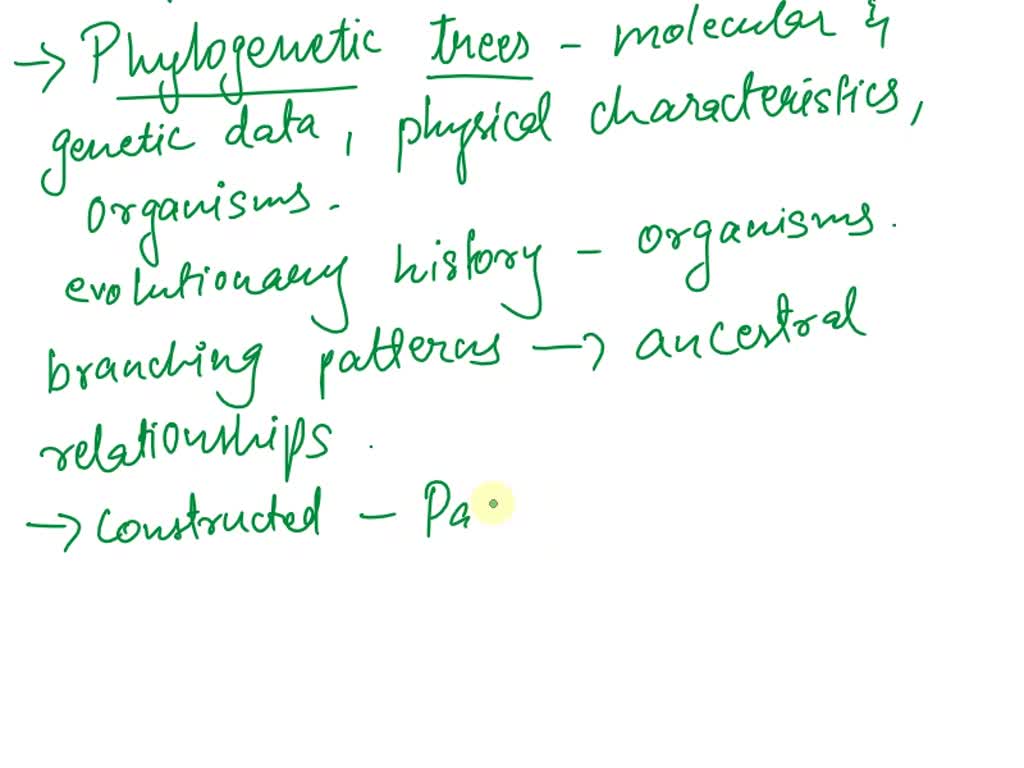 → Phylogenetic trees - molecular &
genetic data, physical characteristics,
organisms.
evolutionary history - organisms.
branching patterns → ancestral
relationships.
→ constructed - Pa